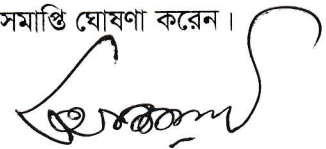 সমাপ্তি ঘোষণা করেন।